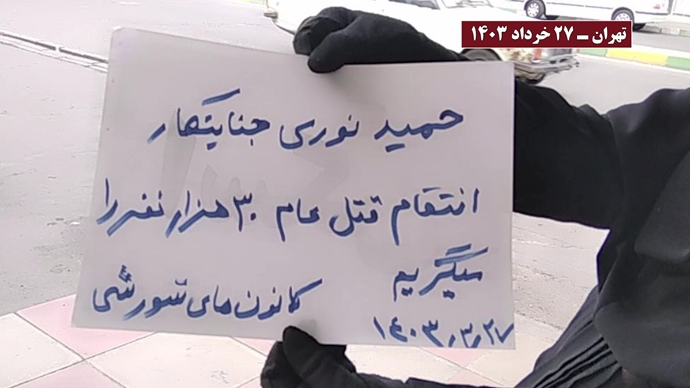 تهران ــ ۲۷ خرداد ۱۴۰۳
حمید نوری جنایتکار
انتقام قتل عام ۳۰ هزار نفر را
میگیریم
کانون‌های شورشی
۱۴۰۳,۳,۲۷